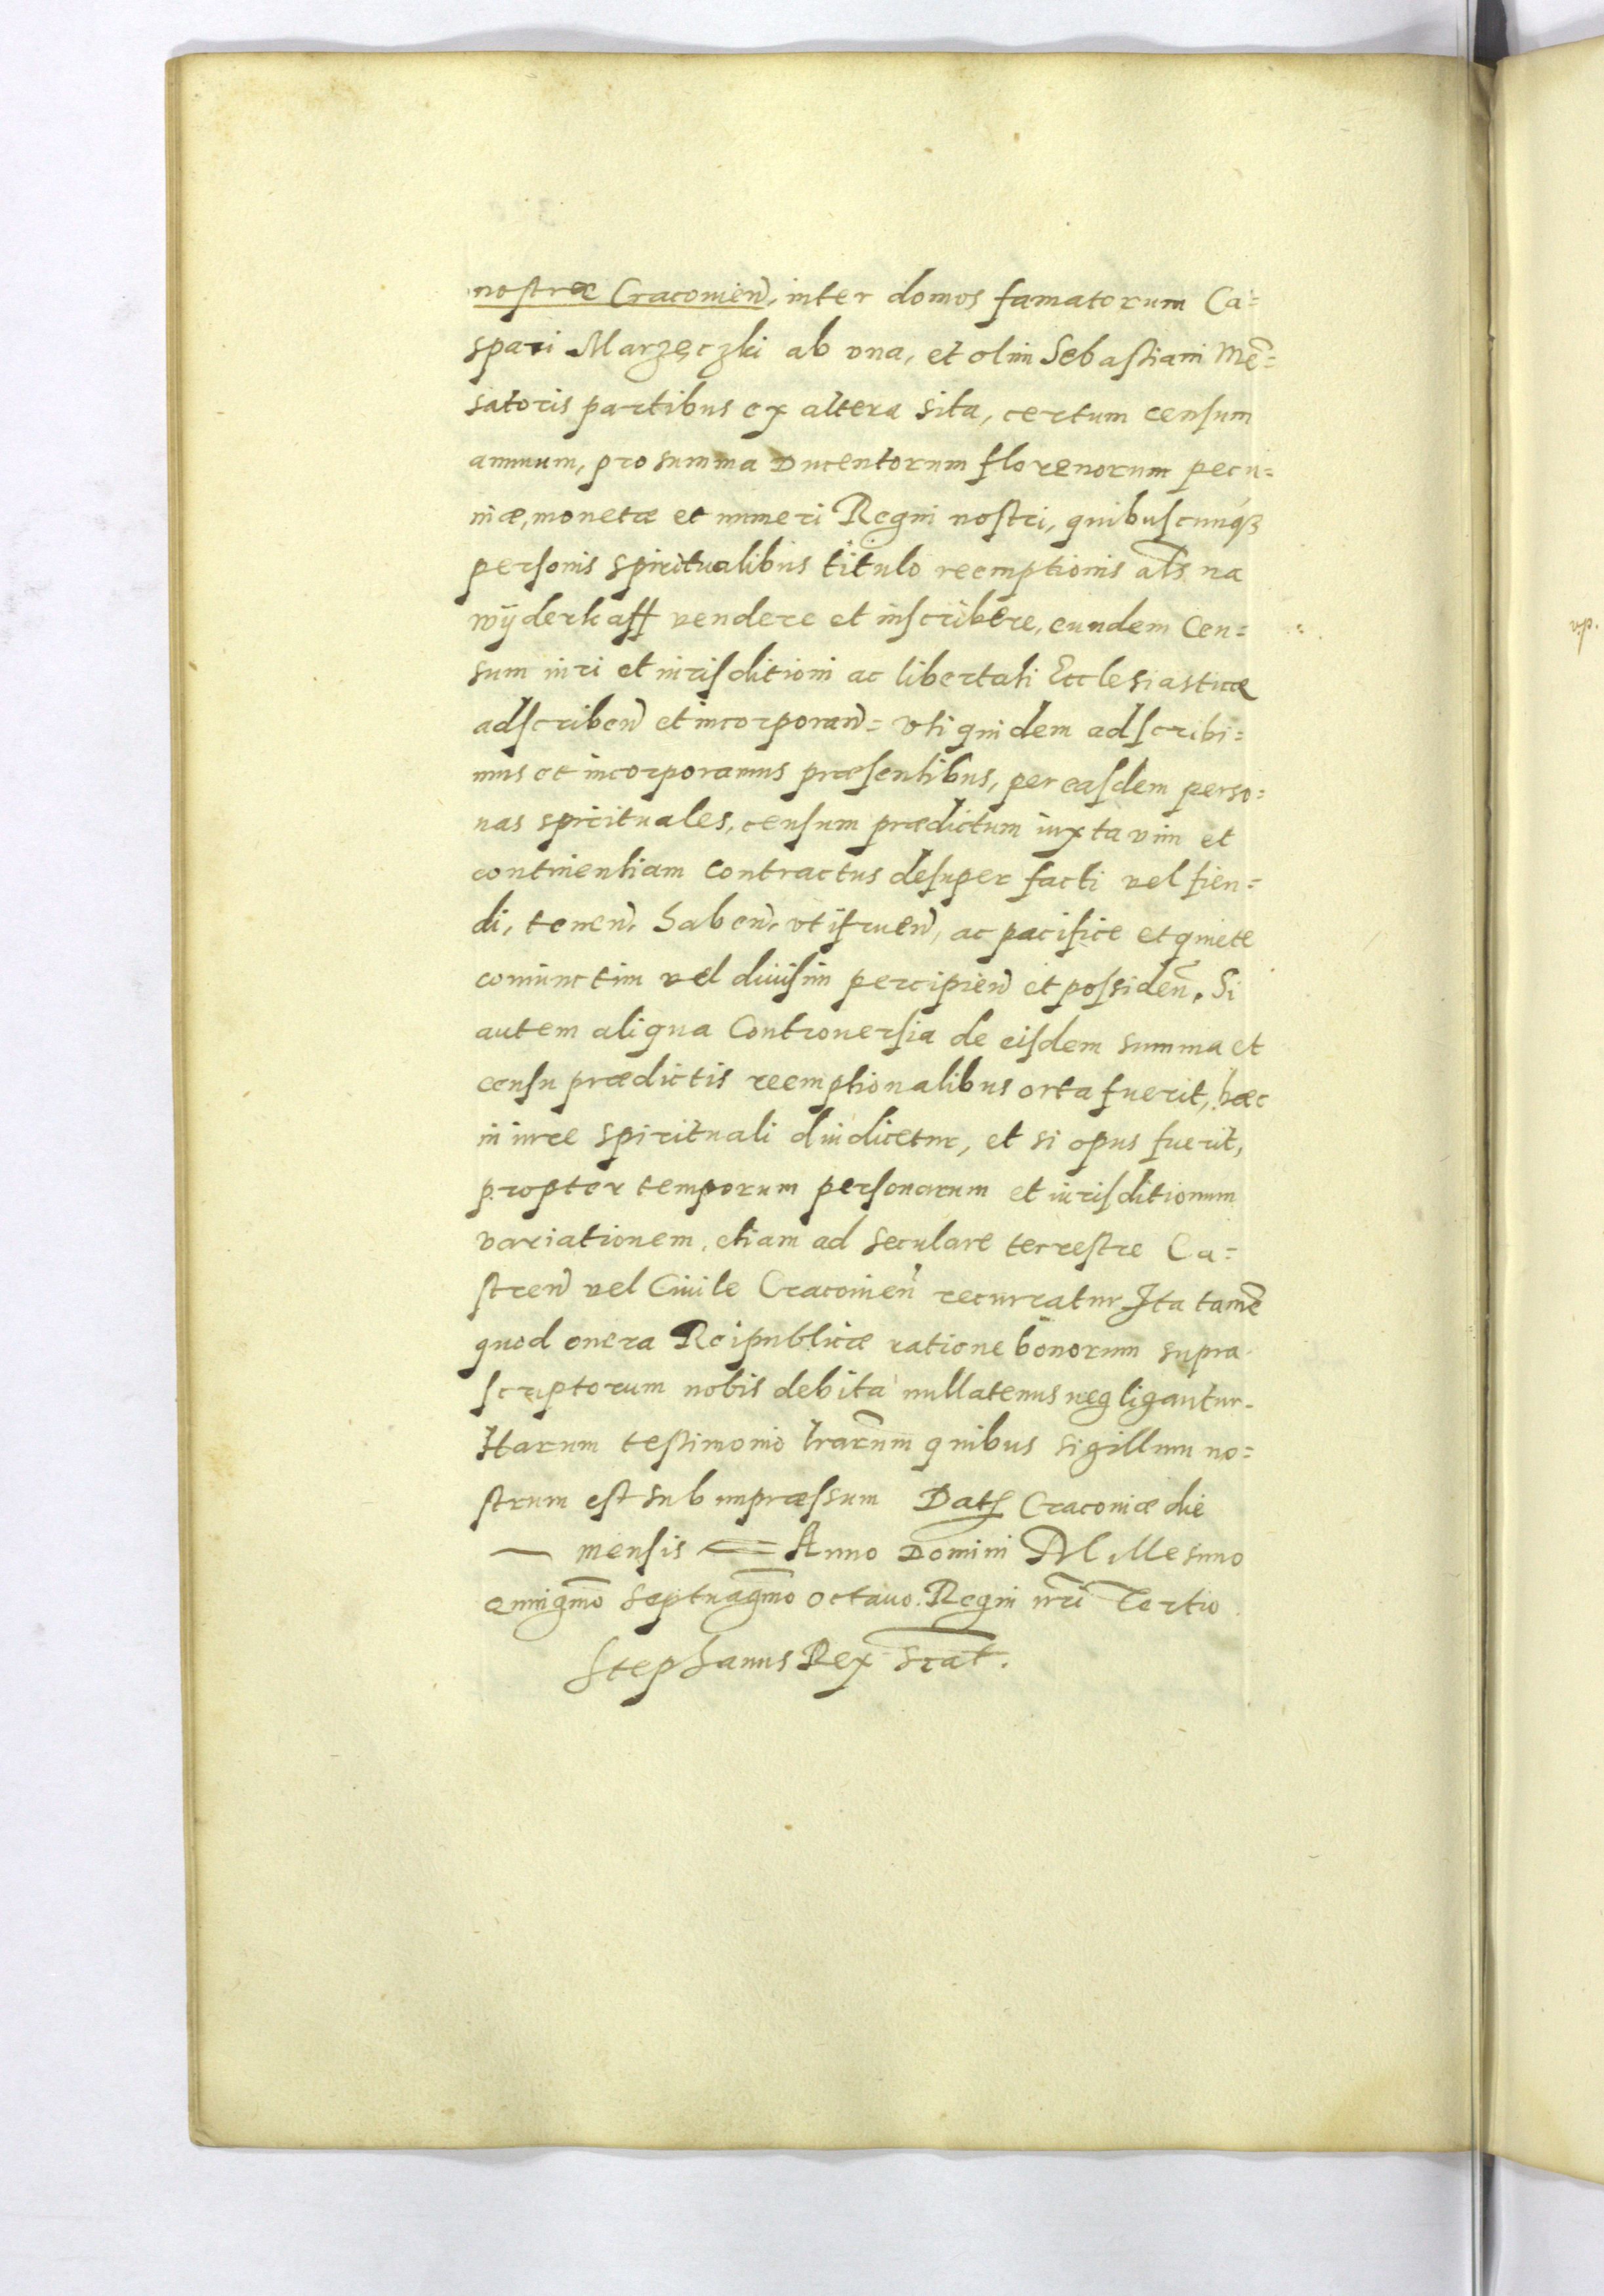 nostræ Cracouien̄, inter domos famatorum Ca=
spari Marzęczki ab vna, et olim Sebastiani Mē=
satoris partibus ex altera sita, certum censum
annuum, pro summa Ducentorum florenorum pecu=
niæ, monetæ et numeri Regni nostri, quibuscunqꝫ
personis spiritualibus titulo reemptionis al̄s na
wÿderkaff vendere et inscribere, eundem Cen=
sum iuri et iurisditioni ac libertati Ecclesiasticæ
adscriben̄ et incorporan̄= vti quidem adscribi=
mus et incorporamus præsentibus, per easdem perso=
nas spirituales, censum prædictum iuxta vim et
continentiam Contractus desuper facti vel fien=
di, tenen̄, haben̄, vtifruen̄, ac pacifice et quiete
coniunctim vel diuisim percipien̄ et possiden̄. Si
autem aliqua Controuersia de eisdem summa et
censu prædictis reemptionalibus orta fuerit, hæc
in iure spirituali diiudicetur, et si opus fuerit,
propter temporum personarum et iurisditionum
variationem, etiam ad seculare terrestre Ca=
stren̄ vel Ciuile Cracouien̄ recurratur Ita tamē
quod onera Reipublicæ ratione bonorum supra
scriptorum nobis debita nullatenus negligantur.
Harum testimonio lr̄arum quibus sigillum no=
strum est subimpræssum Dat̄ Cracouiæ die
— mensis = Anno Domini Millesimo
Quinḡmo Septuaḡmo octauo. Regni nr̄i Tertio
Stephanus Rex sc̄at.